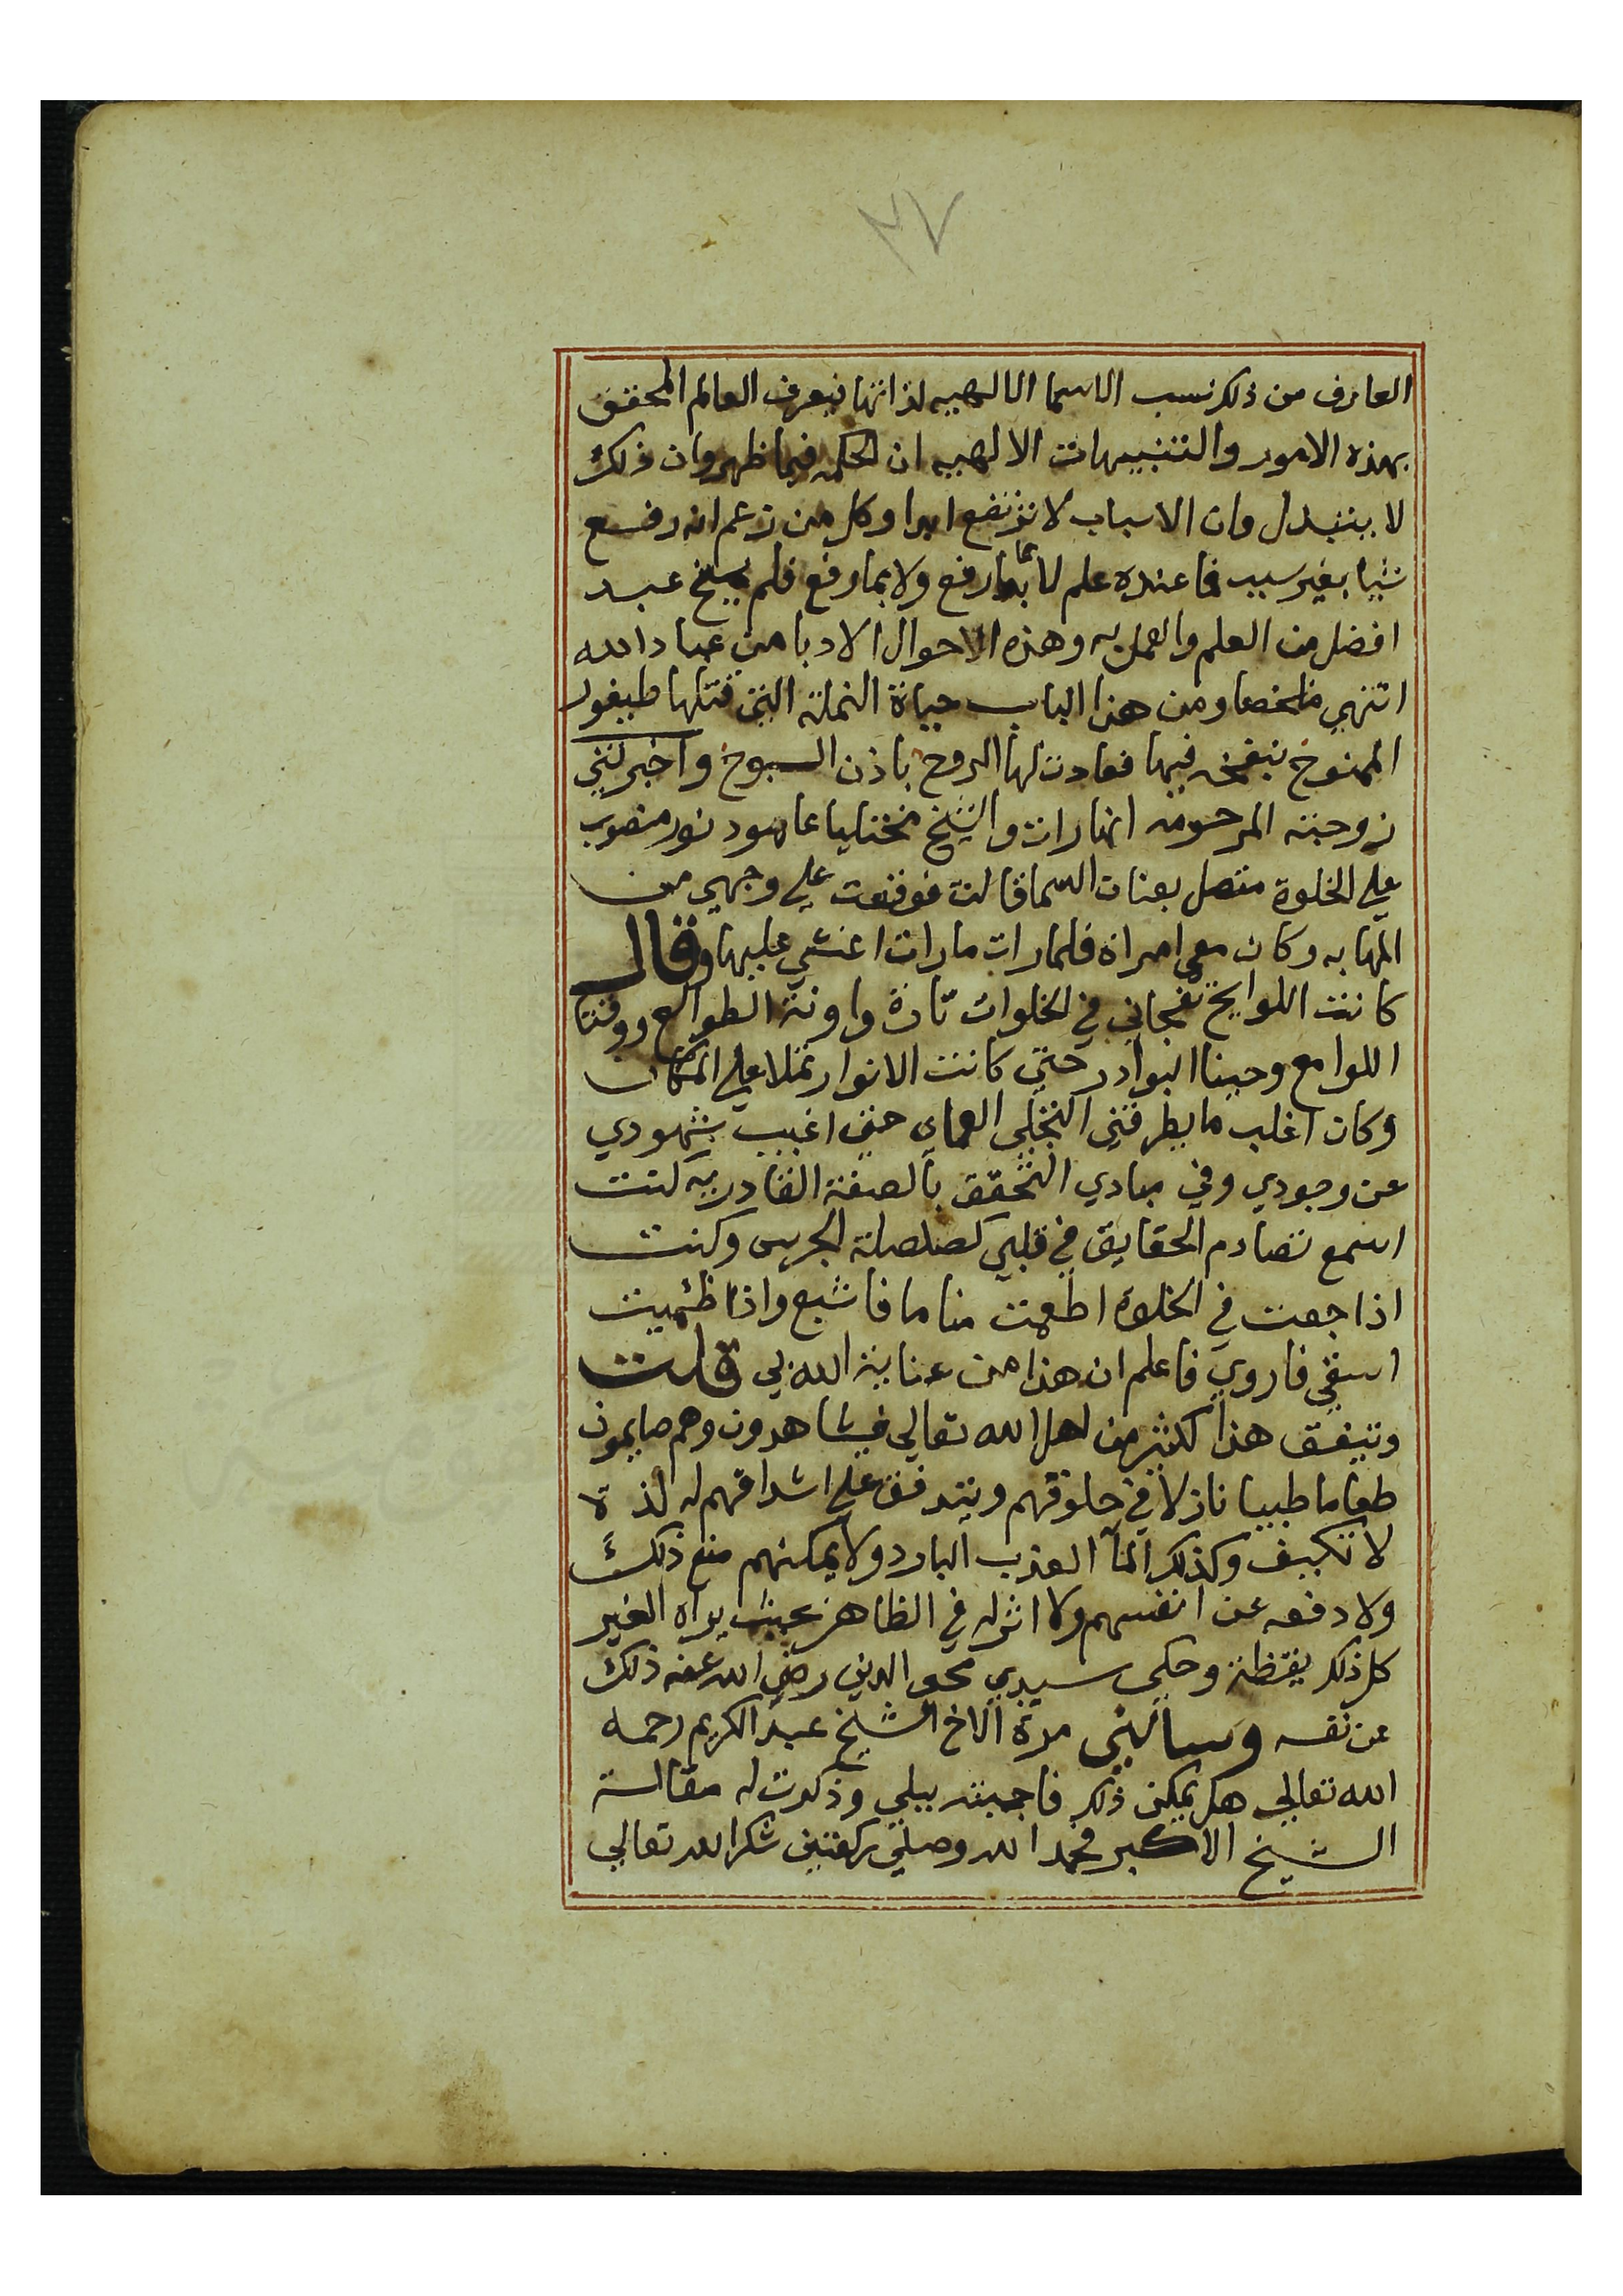 ٣٧
العارف من ذلك نسب الاسما الالهيه لذاتها فيعرف العالم المحقق
بهذه الامور والتنبيهات الالهيه ان الحكمه فيما ظهر وان ذلك
لا يتبدل وان الاسباب لا ترتفع ابدا وكل من زعم انه رفع
شيا بغير سبب فما عنده علم لا بما رفع ولا بما رفع فلم يمنح عبد
افضل من العلم والعمل به وهذه الاحوال الادبا من عباد الله
انتهي ملخصا ومن هذا الباب حياة النملة التي قتلها طيفور
الممنوح بنفخه فيها فعادت لها الروح باذن السبوح واخبرتني
زوجته المرحومه انها رات والشيخ مختليا عامود نور منصوب
علي الخلوة متصل بعنان السما قالت فوقعت علي وجهي من
المهابه وكان معي امراة فلما رات ما رات اغشي عليها وقال
كانت اللوايح تفجاني في الخلوات تارة واونة الطوالع ووقتا
اللوامع وحينا البوادر حتي كانت الانوار تملا علي المكان
وكان اغلب ما يطرقني التجلي العماي حتي اغيب بشهودي
عن وجودي وفي مبادي التحقق بالصفة القادريه كنت
اسمع تصادم الحقايق في قلبي كصلصلة الجرس وكنت
اذا جعت في الخلوة اطعمت مناما فاشبع واذا ظميت
اسقي فاروي فاعلم ان هذا من عناية الله بي قلت
ويتفق هذا لكثير من اهل الله تعالي فيشاهدون وهم صايمون
طعاما طيبا نازلا في حلوقهم ويتدفق علي اشداقهم له لذة
لا تكيف وكذلك المآ العذب البارد ولا يمكنهم منع ذلك
ولا دفعه عن انفسهم ولا اثر له في الظاهر بحيث يراه الغير
كل ذلك يقظة وحكي سيدي محي الدين رضي الله عنه ذلك
عن نفسه وسالني مرة الاخ الشيخ عبد الكريم رحمه
الله تعالي هل يمكن ذلك فاجبته ببلي وذكرت له مقالة
الشيخ الاكبر فحمد الله وصلي ركعتين شكرا لله تعالي